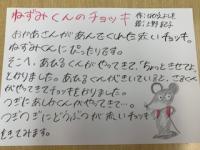 ねずみくんのチョッキ
作:なかえよしを
絵:上野紀子
おかあさんがあんでくれた赤いチョッキ。
ねずみくんにぴったりです。
そこへ、あひるくんがやってきて、「ちょっときせてよ」
とかりました。あひるくんがきていると、さるくん
がやってきてチョッキをかりました。
つぎにあしかくんがやってきて…。
つぎつぎにどうぶつが赤いチョッキ
をきてみます。